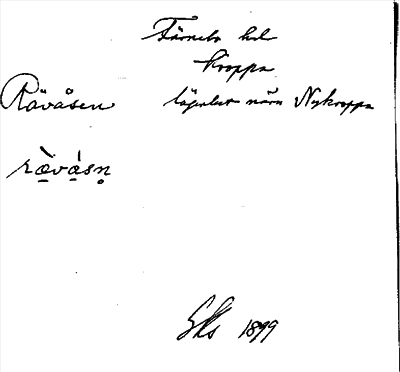 Färnebo hd
Kroppa
Rävåsen lägenhet nära Nykroppa
rä̀vásn̥
1899